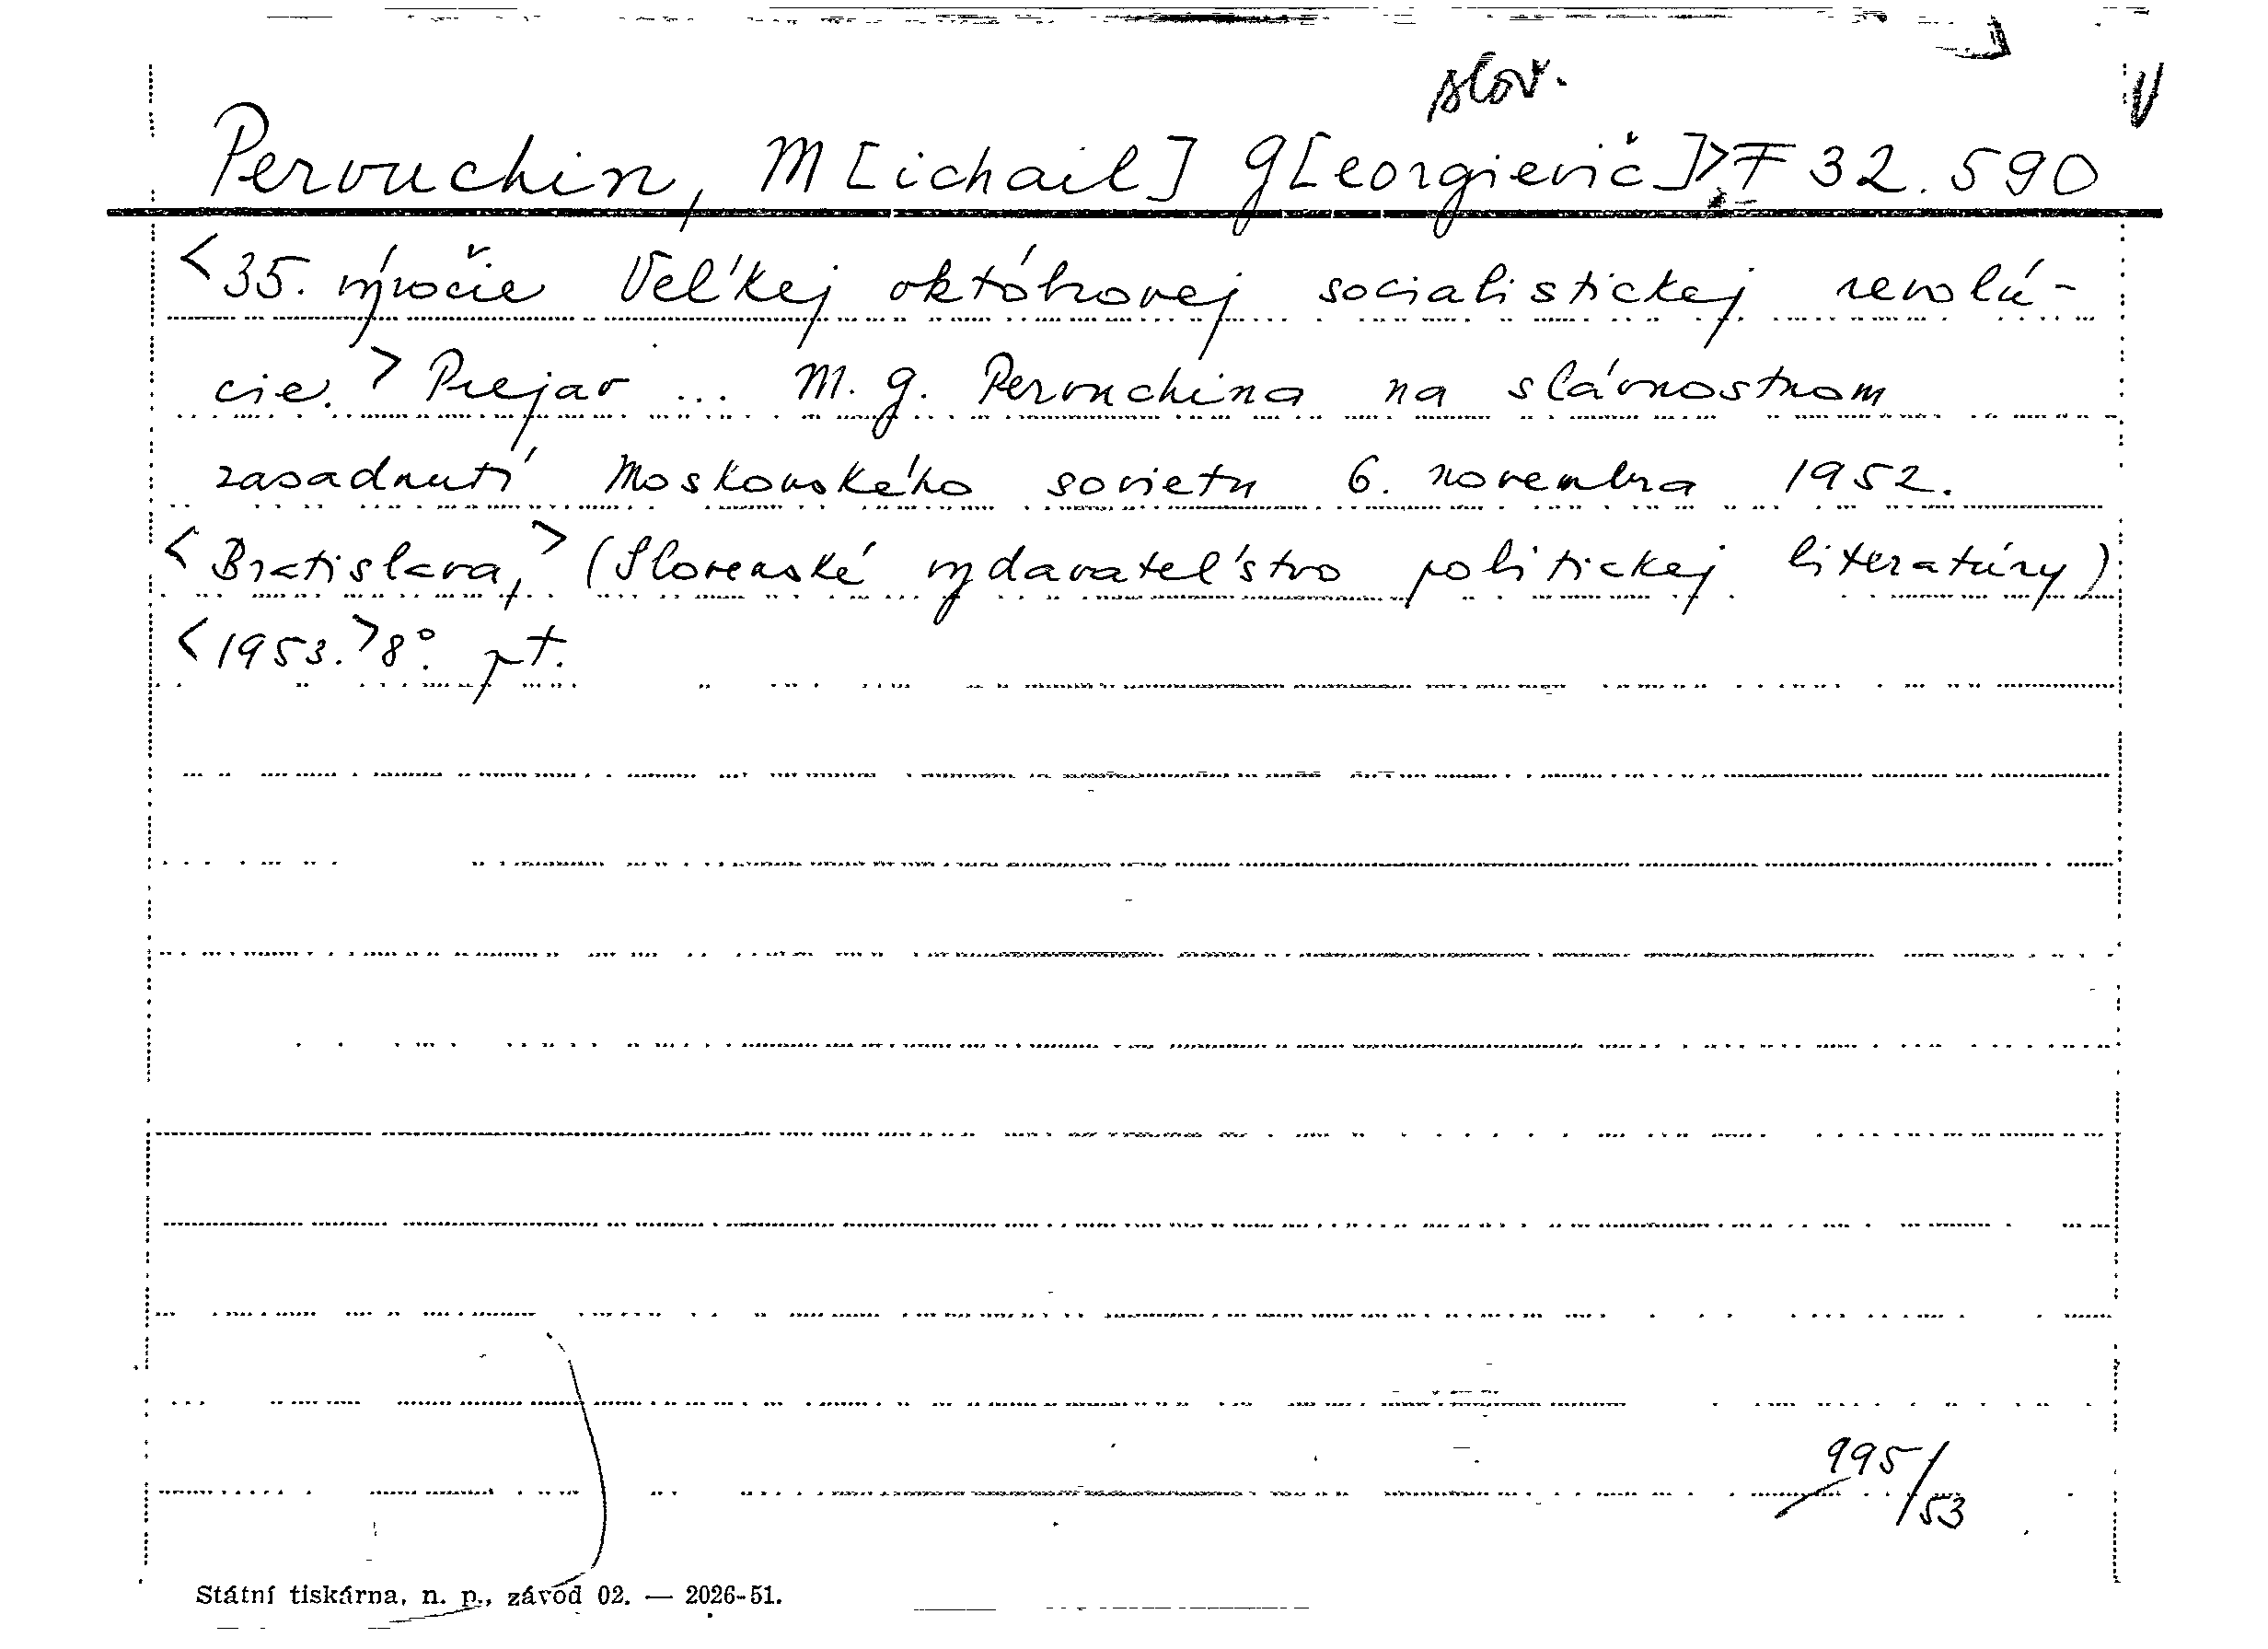 slov.
Pervuchin, M[ichail] G[eorgievič]> F 32.590
<35. výročie Veľkej októbrovej socialistickej revolú-
cie.> Prejav ... M. G. Pervuchina na slávnostnom
zasadnutí Moskovského sovietu 6. novembra 1952.
<Bratislava,> (Slovenské vydavateľstvo politickej literatúry)
<1953.> 8°. pt.
995/53
Státní tiskárna, n. p., závod 02. — 2026-51.